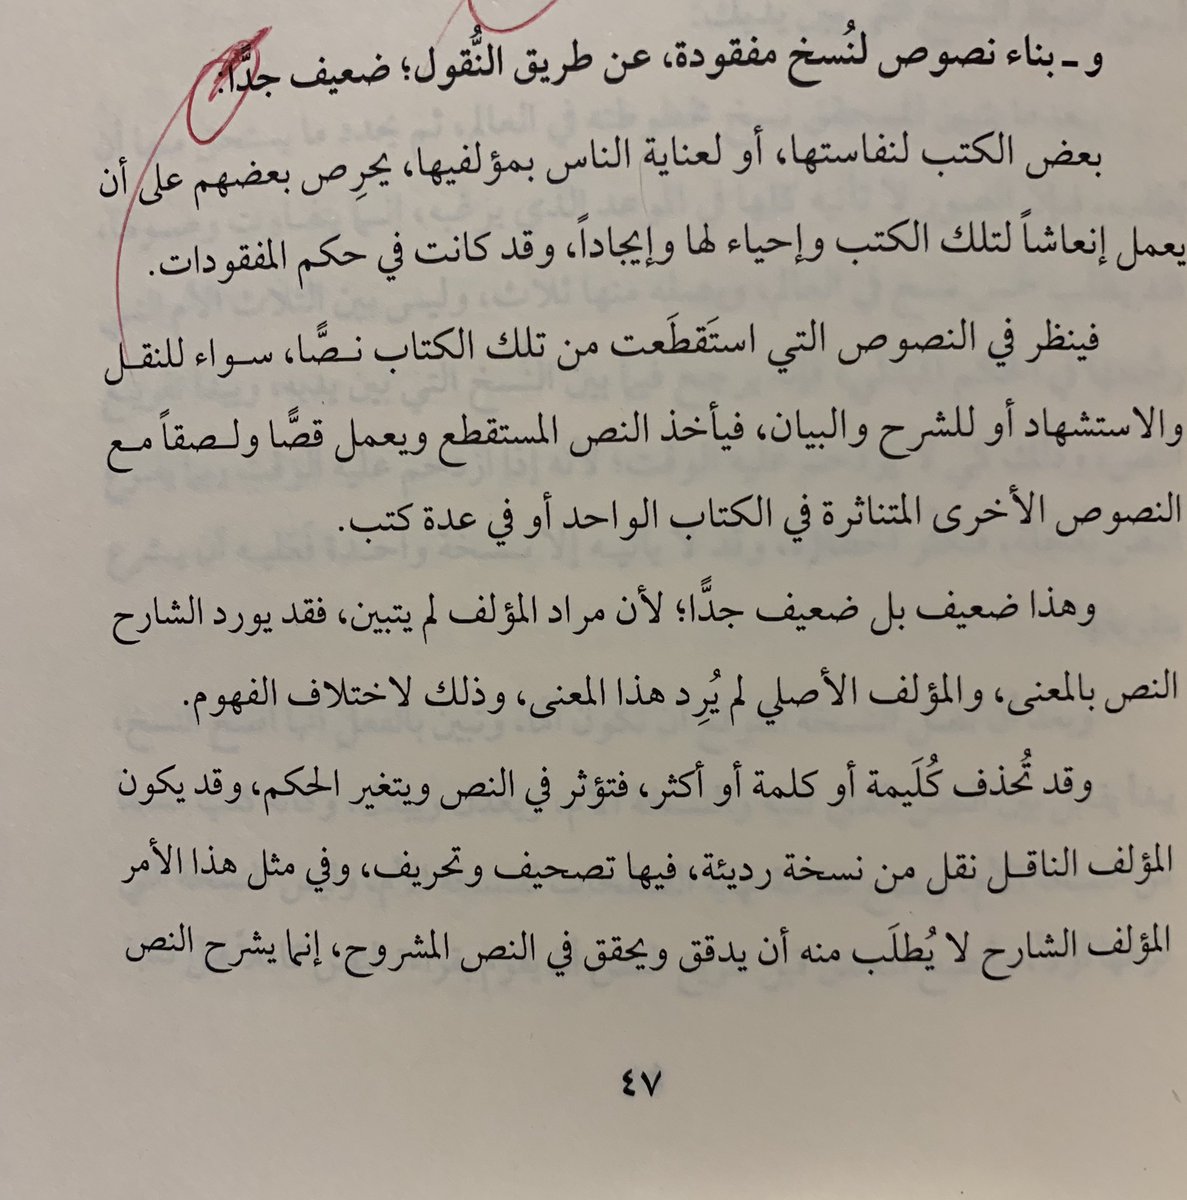 و ـ بناء نصوص لنُسخ مفقودة، عن طريق النُّقول؛ ضعيف جدًّا:
بعض الكتب لنفاستها، أو لعناية الناس بمؤلفيها، يحرِص بعضهم على أن
يعمل إنعاشاً لتلك الكتب وإحياء لها وإيجاداً، وقد كانت في حكم المفقودات.
فينظر في النصوص التي استَقطَعت من تلك الكتاب نـصًّا، سـواء للنقـل
والاستشهاد أو للشرح والبيان، فيأخذ النص المستقطع ويعمل قصًّا ولـصقاً مـع
النصوص الأخرى المتناثرة في الكتاب الواحد أو في عدة كتب.
وهذا ضعيف بل ضعيف جدًّا؛ لأن مراد المؤلف لم يتبين، فقد يورد الشارح
النص بالمعنى، والمؤلف الأصلي لم يُرِد هذا المعنى، وذلك لاختلاف الفهوم.
وقد تُحذف كُلَيمة أو كلمة أو أكثر، فتؤثر في النص ويتغير الحكم، وقد يكون
المؤلف الناقـل نقل من نسخة رديئة، فيها تصحيف وتحريف، وفي مثل هذا الأمر
المؤلف الشارح لا يُطلَب منه أن يدقق ويحقق في النص المشروح، إنما يشرح النص
٤٧